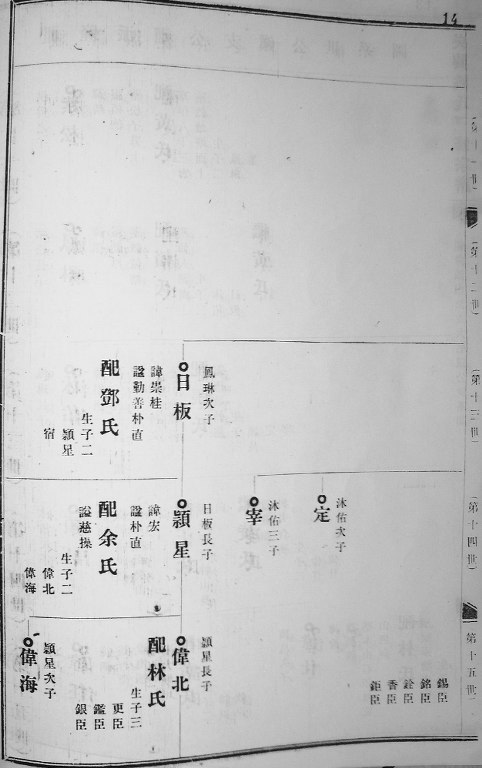 14
第十二世
第十三世
第十四世
第十五世
錫臣
銘臣
銓臣
香臣
鉅臣
鳳琳次子
日板
諱崇桂
諡勤善朴直
配鄧氏
生子二
穎星
宿
沐佑次子
定
沐佑三子
宰
日板長子
穎星
諱宏
諡朴直
配余氏
諡慈操
生子二
偉北
偉海
穎星長子
偉北
配林氏
生子三
更臣
鑑臣
銀臣
穎星次子
偉海